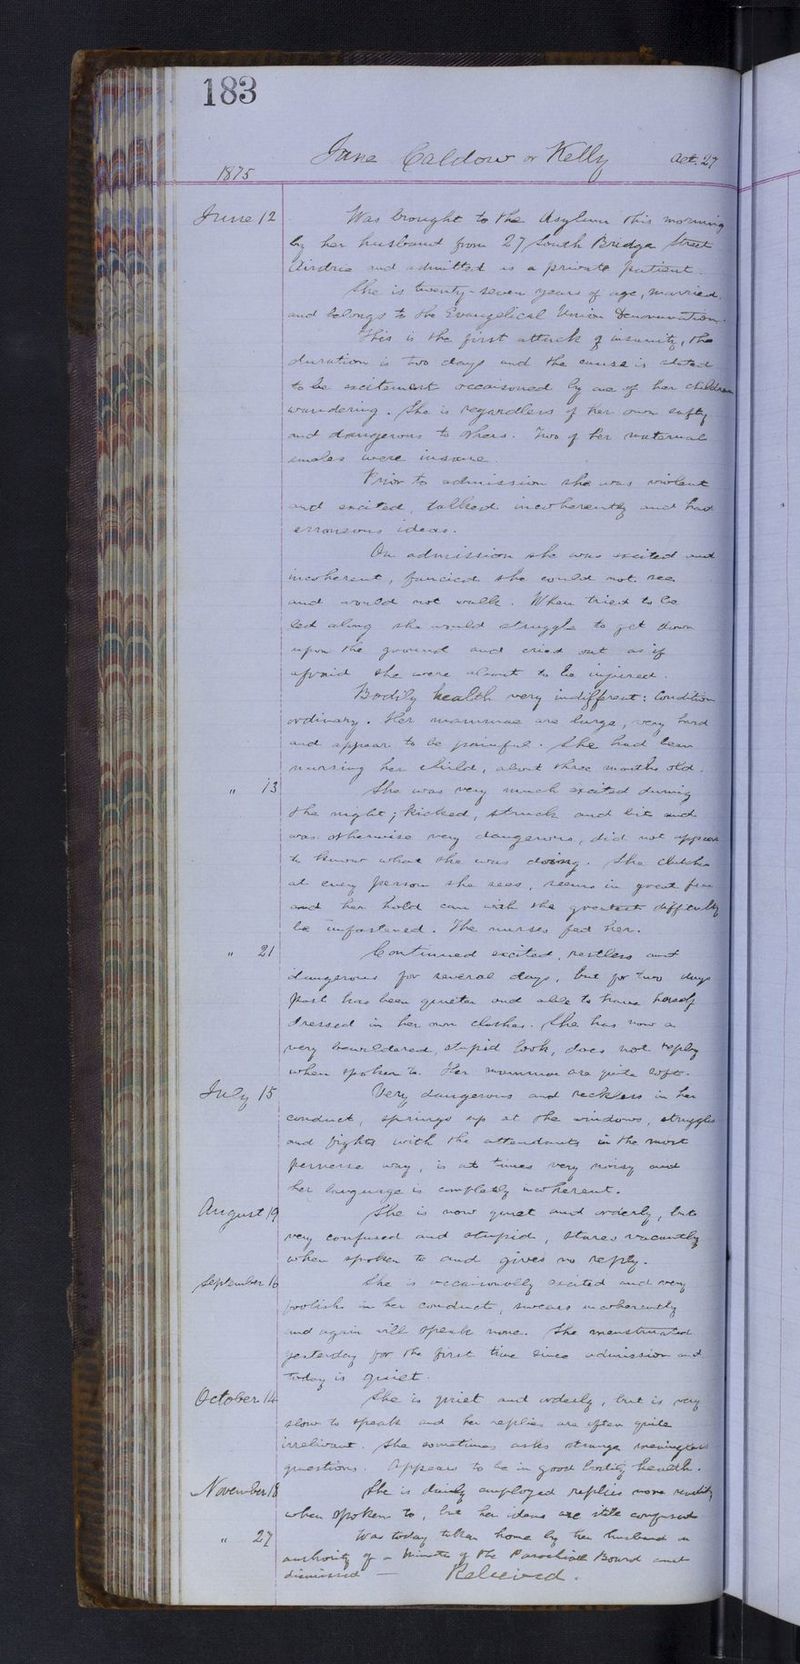 183
Jane Caldow or Kelly aet. 27
1875
June 12 Was brought to the Asylum this morning
by her husband from 27 South Bridge Street
Airdrie and admitted as a private patient.
She is twenty-seven years of age, married,
and belongs to the Evangelical Union Denomination.
This is the first attack of insanity, the
duration is two days and the cause is stated
to be excitement occaisoned by one of her children
wandering. She is regardless of her own safty
and dangerous to others. Two of her maternal
uncles were insane.
Prior to admission she was violent
and excited, talked incoherently and had
erroneous ideas.
On admission she was excited and
incoherent, fancied she could not see
and would not walk. When tried to be
led along she would struggle to get down
upon the ground and cried out as if
afraid she were about to be injured.
Bodily health very indifferent: Condition
ordinary. Her mammae are large, very hard
and appear to be painful. She had been
nursing her child, about three months old.
" 13 She was very much excited during
the night; kicked, struck and bit and
was otherwise very dangerous, did not appear
to know what she was doing. She clutches
at every person she sees, seems in great fear
and her hold can with the greatest difficulty
be unfastened. The nurses fed her.
" 21 Continued excited, restless and
dangerous for several days, but for two days
past has been quieter and able to have herself
dressed in her own clothes. She has now a
very bewildered, stupid look, does not reply
when spoken to. Her mammae are quite soft.
July 15 Very dangerous and reckless in her
conduct, springs up at the windows, struggles
and fights with the attendants in the most
perverse way, is at times very noisy and
her language is completely incoherent.
August 19 She is now quiet and orderly, but
very confused and stupid, stares vacantly
when spoken to and gives no reply.
September 16 She is occaisionally excited and very
foolish in her conduct, swears incoherently
and again will speak none. She menstruated
yesterday for the first time since admission and
today is quiet.
October 14 She is quiet and orderly, but is very
slow to speak and her replies are often quite
irrelivant. She sometimes asks strange meaningless
questions. Appears to be in good bodily health.
November 18 She is dainly employed replies more readily
when spoken to, but her ideas are still confused
" 27 Was today taken home by her husband on
authority of a Minute of the Parochial Board and
dismissed — Relieved.